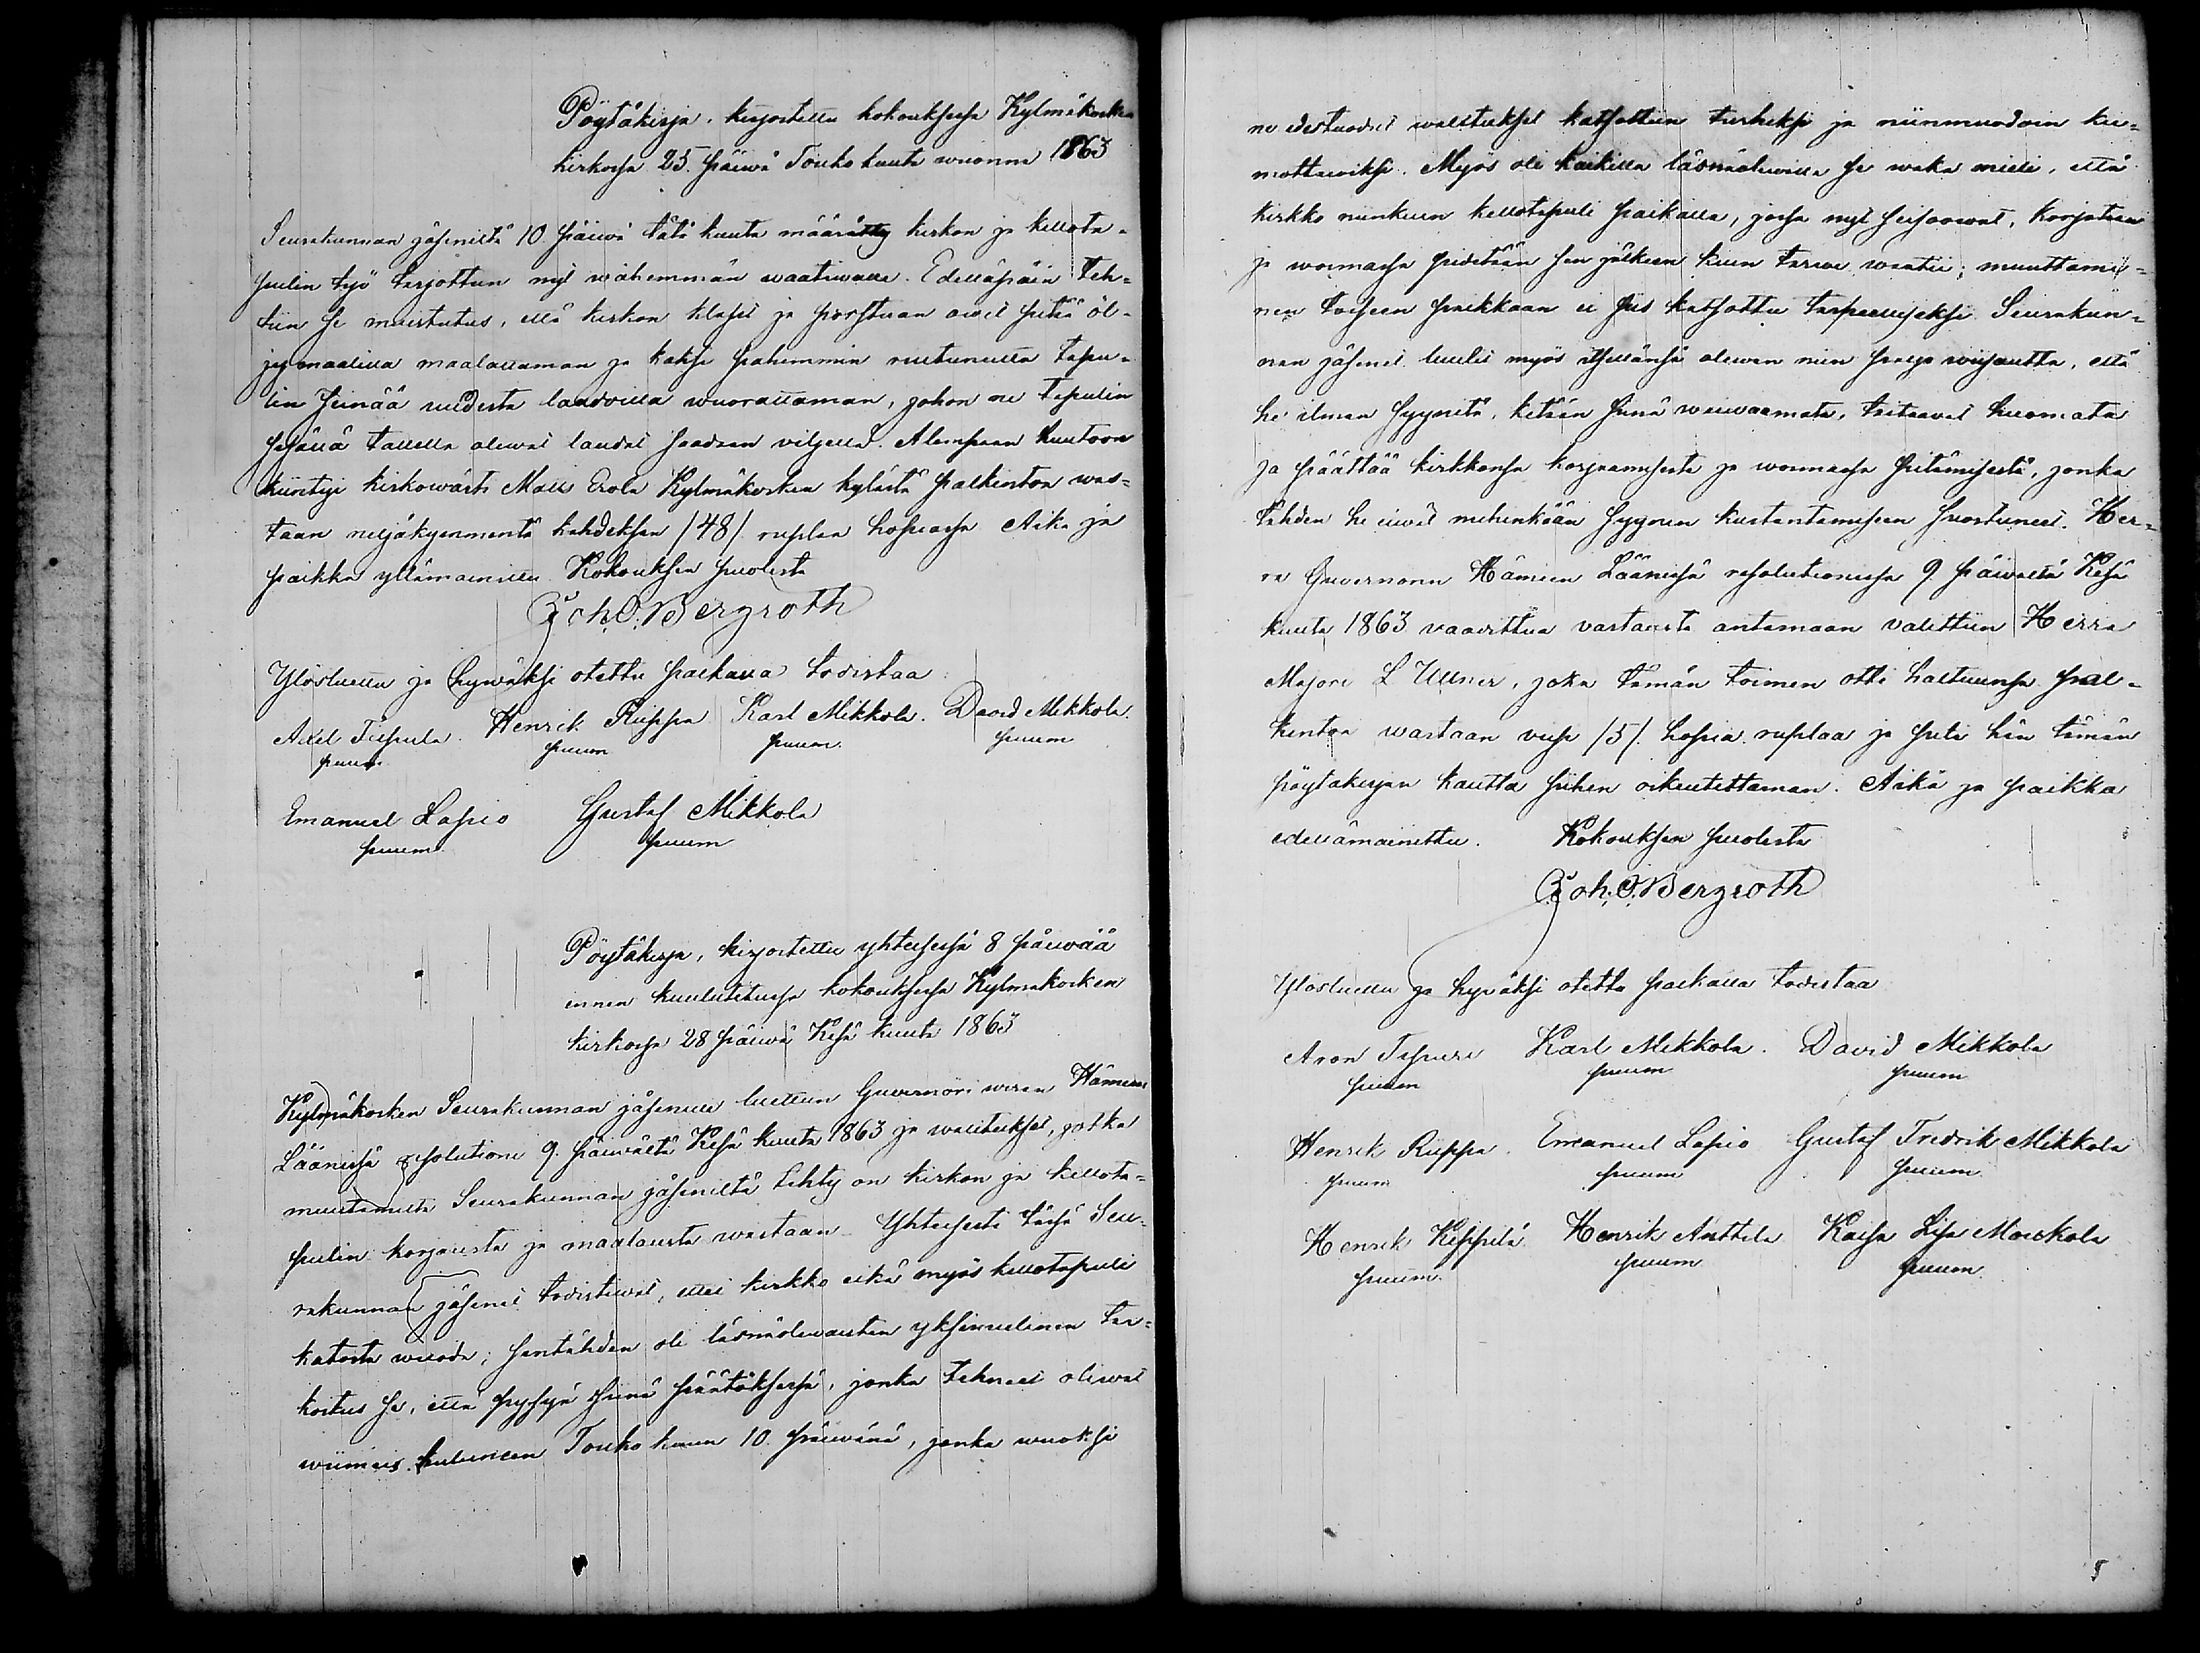 Pöytäkirja, kirjoitettu kokouksessa Kylmäkosken
kirkossa 25. päiwä Toukokuuta wuonna 1863
Seurakunnan jäseniltä 10. päiwä tätä kuuta määrätty kirkon ja kellota-
pulin työ tarjottun nyt wähemmän waatiwalle. Edelläpäin teh-
tiin se muistutus, että kirkon klasit ja porstuan owet pitää öl-
jymaalilla maalattaman ja kaksi pahemmin tapu-
lin seinää uudesta laudoilla wuorattaman, johon ne tapulin
sisällä tallella olewat laudat saadaan viljellä. Alempaan huutoon
kiintyi kirkowärti Matts Erola Kylmäkosken kylästä palkintoa was-
taan neljäkymmentä kahdeksan /48/ ruplaa hopiassa Aika ja
paikka yllämainittu. Kokouksen puolesta
Joh. O. Bergroth
Ylösluettu ja hywäksi otettu paikalla todistaa:
Axel Tipula. Henrik Riippa Karl Mikkola. David Mikkola.
puum puum puum. puum
Emanuel Lapio Gustaf Mikkola
puum. puum
Pöytäkirja, kirjoitettu yhteisessä 8 päiwää
ennen kuulutetussa kokouksessa Kylmäkosken
kirkossa 28 päiwä Kesä kuuta 1863
Kylmäkosken Seurakunnan jäsenille luettiin Guvernöri wiran Hämeen
Läänissä resolutioni 9. päiwältä Kesä kuuta 1863 ja walitukset, jotka
muutamilta Seurakunnan jäseniltä tehty on kirkon ja kellota-
pulin korjausta ja maalausta wastaan. Yhteisesti tässä Seu-
rakunnan jäsenet todistiwat, ettei kirkko eikä myös kellotapuli
katosta wuoda; sentähden oli läsnäolewaisten yksimielinen tar-
koitus se, että pysyä siinä päätöksessä, jonka tehneet oliwat
wiimeis kuluneen Touko kuun 10. päiwänä, jonka wuoksi
ne edestuodut walitukset katsottiin turhiksi ja niinmuodoin ku-
mottawiksi. Myös oli kaikilla läsnäolewilla se waka mieli, että
kirkko niinkuin kellotapuli paikalla, jossa nyt seisoowat, korjataan
ja woimassa pidetään sen jälkeen kuin tarwe waatii; muuttami-
nen toiseen paikkaan ei siis katsottu tarpeelliseksi. Seurakun-
nan jäsenet luulit myös itsellänsä olewan niin paljo wiisautta, että
he ilman Hyynitä, ketään siinä waiwaamata, taitaawat huomata
ja päättää kirkkonsa korjaamisesta ja woimassa pitämisestä, jonka
tähden he eiwät mihinkään Syynin kustantamiseen suostuneet. Her-
ra Guvernorin Hämeen Läänissä resolutionissa 9. päiwältä Kesä
kuuta 1863 vaadittua vastausta antamaan valittiin Herra
Majori L Ullner, joka tämän toimen otti haltuunsa pal-
kintoa wastaan viisi /5/ hopia ruplaa ja piti hän tämän
pöytäkirjan kautta siihen oikeutettaman. Aika ja paikka
edellämainittu. Kokouksen puolesta
Joh. O. Bergroth
Ylösluettu ja hyväksi otettu paikalla todistaa
Aron Tapuri Karl Mikkola. David Mikkola
puum puum puum
Henrik Riippa. Emanuel Lapio Gustaf Fredrik Mikkola
puum puum puum
Henrik Keppilä Henrik Anttila Kaisa Lisa Moiskola
puum. puum puum